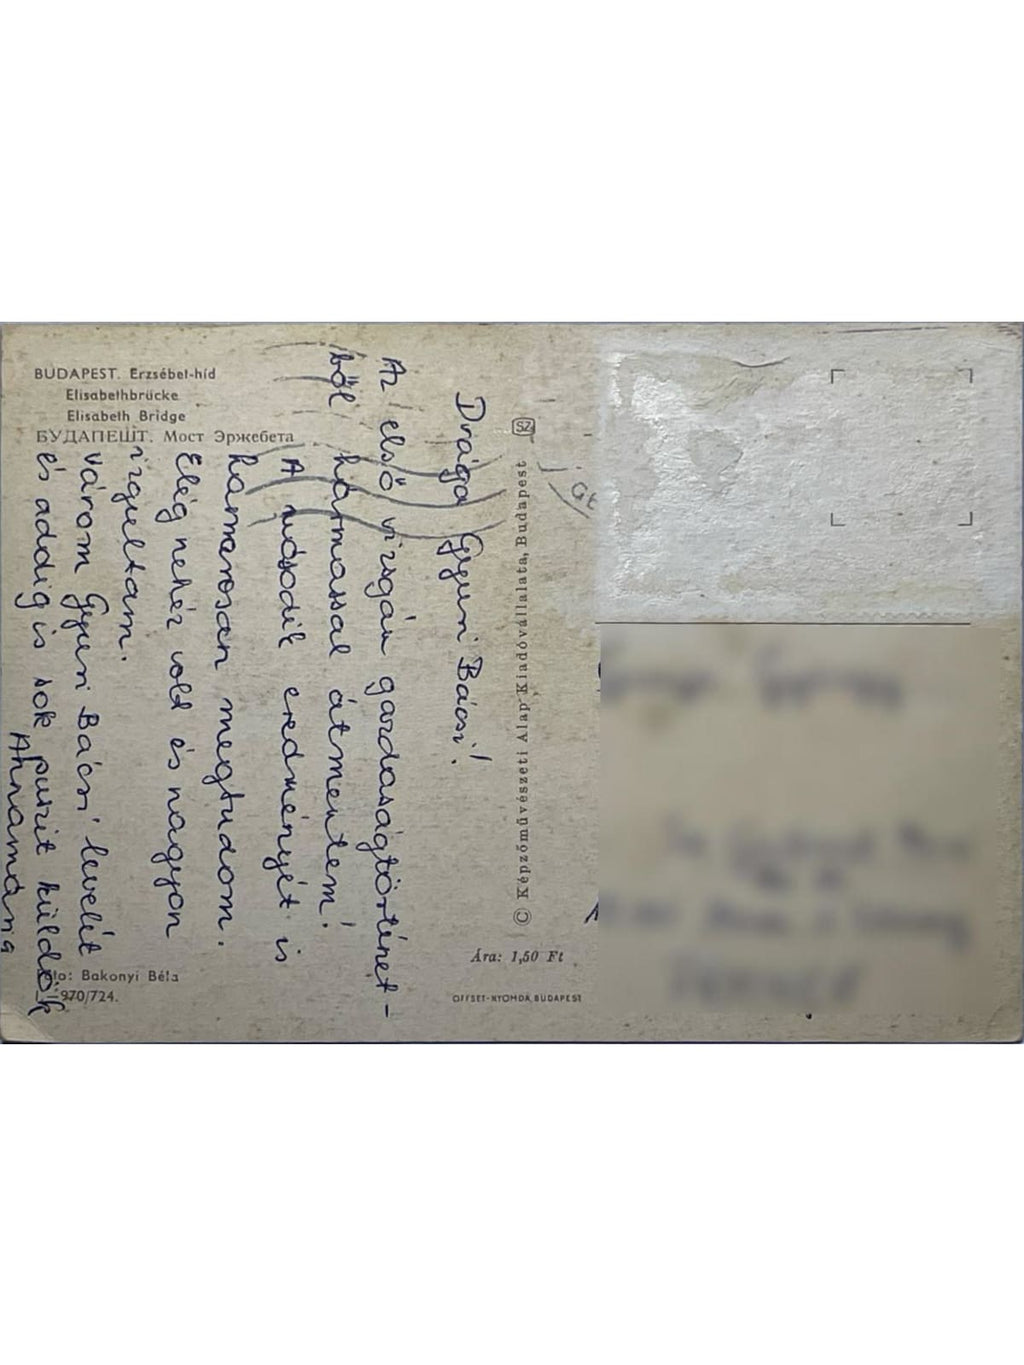 BUDAPEST. Erzsébet-híd
Elisabethbrücke
Elisabeth Bridge
БУДАПЕШТ. Мост Эржебета
Drága Gyuri Bácsi!
Az első vizsgán gazdaságtörténet-
ből hármassal átmentem!
A második eredményét is
hamarosan megtudom.
Elég nehéz volt és nagyon
izgultam.
Várom Gyuri Bácsi levelét
és addig is sok puszit küldök
Annamária
Bakonyi Béla
970/724.
SZ
© Képzőművészeti Alap Kiadóvállalata, Budapest
Ára: 1,50 Ft
OFFSET-NYOMDA, BUDAPEST